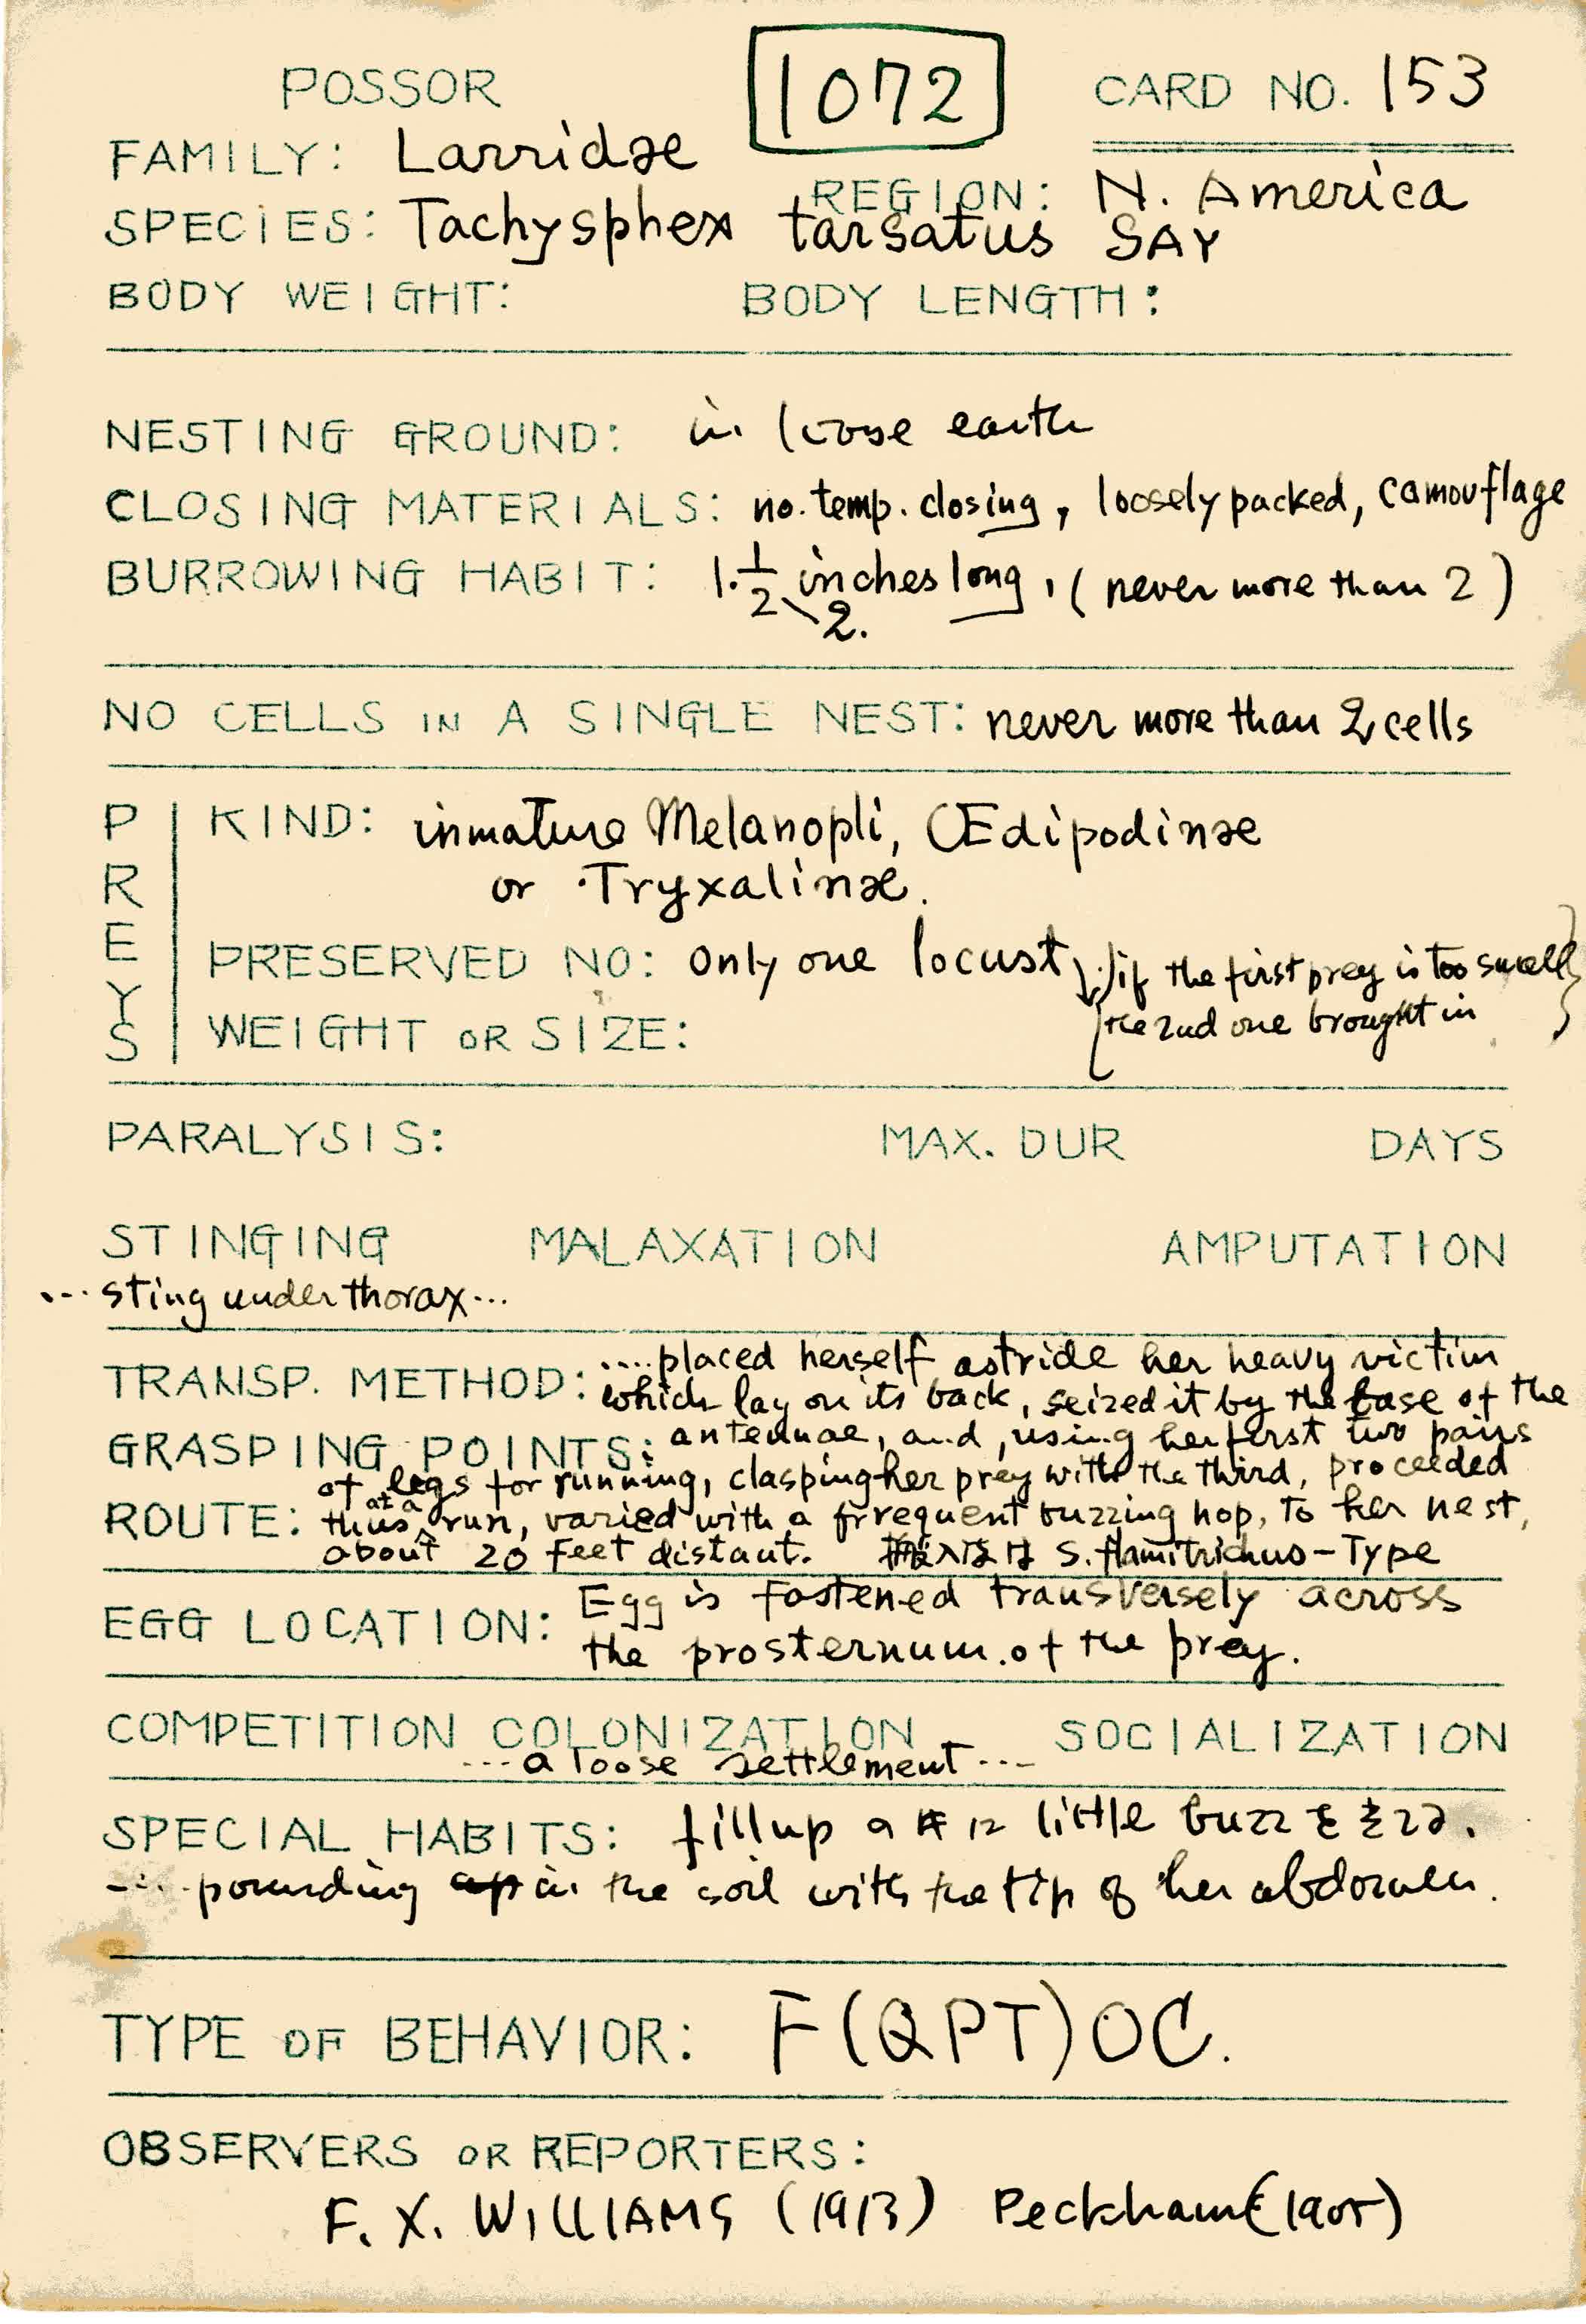 POSSOR 1072 CARD NO. 153
FAMILY: Larridae REGION: N. America
SPECIES: Tachysphex tarsatus SAY
BODY WEIGHT: BODY LENGTH:
NESTING GROUND: in loose earth
CLOSING MATERIALS: no. temp. closing, loosely packed, camouflage
BURROWING HABIT: 1.1/2 inches long, (never more than 2)
2.
NO CELLS IN A SINGLE NEST: never more than 2 cells
PREYS
KIND: inmature Melanopli, Œdipodinae
or Tryxalinæ.
PRESERVED NO: only one locust, if the first prey is too small
the 2nd one brought in
WEIGHT OR SIZE:
PARALYSIS: MAX. DUR DAYS
STINGING MALAXATION AMPUTATION
... sting under thorax...
TRANSP. METHOD: ....placed herself astride her heavy victim
which lay on its back, seized it by the base of the
GRASPING POINTS: antennae, and, using her first two pairs
of legs for running, clasping her prey with the third, proceeded
ROUTE: thus at a run, varied with a frrequent buzzing hop, to her nest,
about 20 feet distant. 搬入法は S. -Type
EGG LOCATION: Egg is fastened transversely across
the prosternum of the prey.
COMPETITION COLONIZATION SOCIALIZATION
...a loose settlement...
SPECIAL HABITS: fill up の時に little buzz をきく.
.... pounding in the soil with the tip of her abdomen.
TYPE OF BEHAVIOR: F(QPT)OC.
OBSERVERS OR REPORTERS:
F. X. WILLIAMS (1913) Peckham (1905)